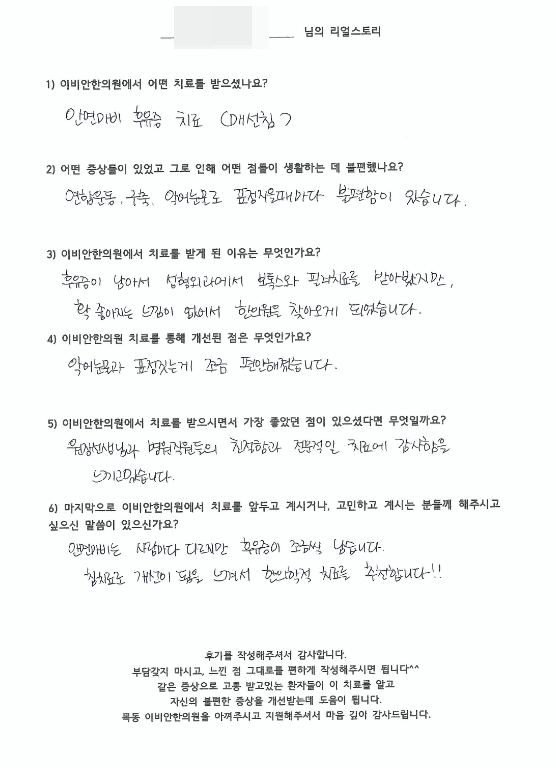 님의 리얼스토리
1) 이비안한의원에서 어떤 치료를 받으셨나요?
안면마비 후유증 치료 (매선침)
2) 어떤 증상들이 있었고 그로 인해 어떤 점들이 생활하는 데 불편했나요?
연합운동, 구축, 악어눈물로 표정지을때마다 불편함이 있습니다.
3) 이비안한의원에서 치료를 받게 된 이유는 무엇인가요?
후유증이 남아서 성형외과에서 보톡스와 필러치료를 받아봤지만,
확 좋아지는 느낌이 없어서 한의원을 찾아오게 되었습니다.
4) 이비안한의원 치료를 통해 개선된 점은 무엇인가요?
악어눈물과 표정짓는게 조금 편안해졌습니다.
5) 이비안한의원에서 치료를 받으시면서 가장 좋았던 점이 있으셨다면 무엇일까요?
원장선생님과 병원직원들의 친절함과 전문적인 치료에 감사함을
느끼고있습니다.
6) 마지막으로 이비안한의원에서 치료를 앞두고 계시거나, 고민하고 계시는 분들께 해주시고
싶으신 말씀이 있으신가요?
안면마비는 사람마다 다르지만 후유증이 조금씩 남습니다.
침치료로 개선이 됨을 느껴서 한의학적 치료를 추천합니다!!
후기를 작성해주셔서 감사합니다.
부담갖지 마시고, 느낀 점 그대로를 편하게 작성해주시면 됩니다^^
같은 증상으로 고통 받고있는 환자들이 이 치료를 알고
자신의 불편한 증상을 개선받는데 도움이 됩니다.
목동 이비안한의원을 아껴주시고 지원해주셔서 마음 깊이 감사드립니다.